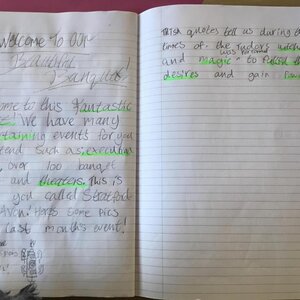 Welcome To our
Beautiful
Banquet!
ome to this fantastic
We have many
taining events for you
tend such as: execution
over 100 banquet
and theaters. This is
you called Stratford
Avon! Here some pics
last month's event!
quotes tell us during the
times of the Tudors witch
was performed
and magic to
desires and gain